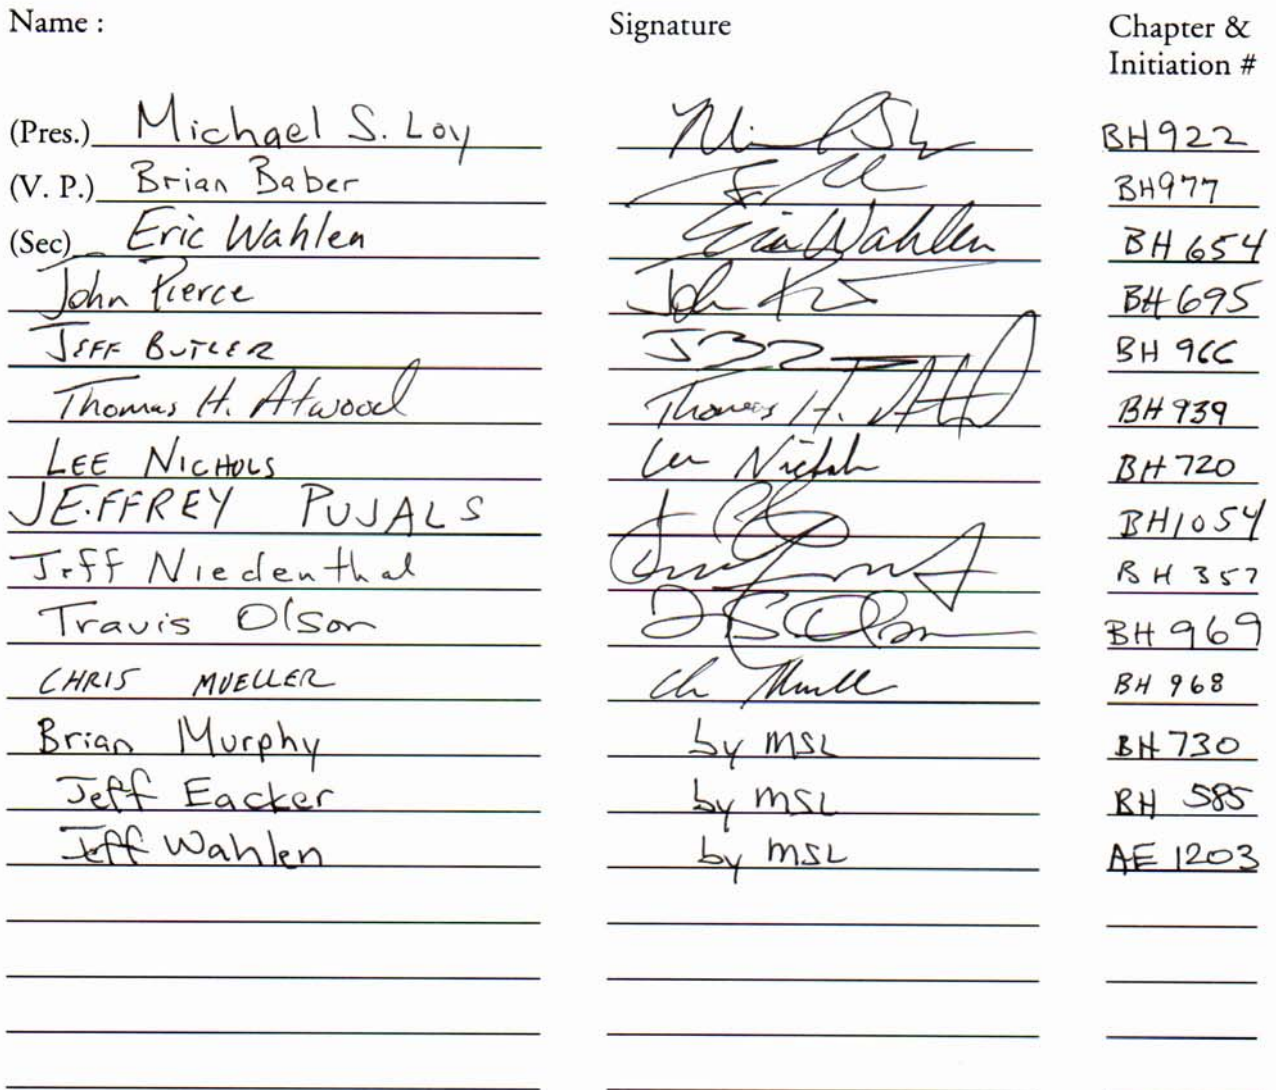 Name : Signature Chapter &
Initiation #
(Pres.) Michael S. Loy BH922
(V. P.) Brian Baber BH977
(Sec) Eric Wahlen Eric Wahlen BH 654
John Pierce John BH 695
JEFF BUTLER BH 966
Thomas H. Atwood Thomas H. BH 939
LEE NICHOLS Lee Nichols BH 720
JEFFREY PUJALS BH1054
Jeff Niedenthal BH 357
Travis Olson BH 969
CHRIS MUELLER BH 968
Brian Murphy by MSL BH 730
Jeff Eacker by MSL BH 585
Jeff Wahlen by MSL AE 1203